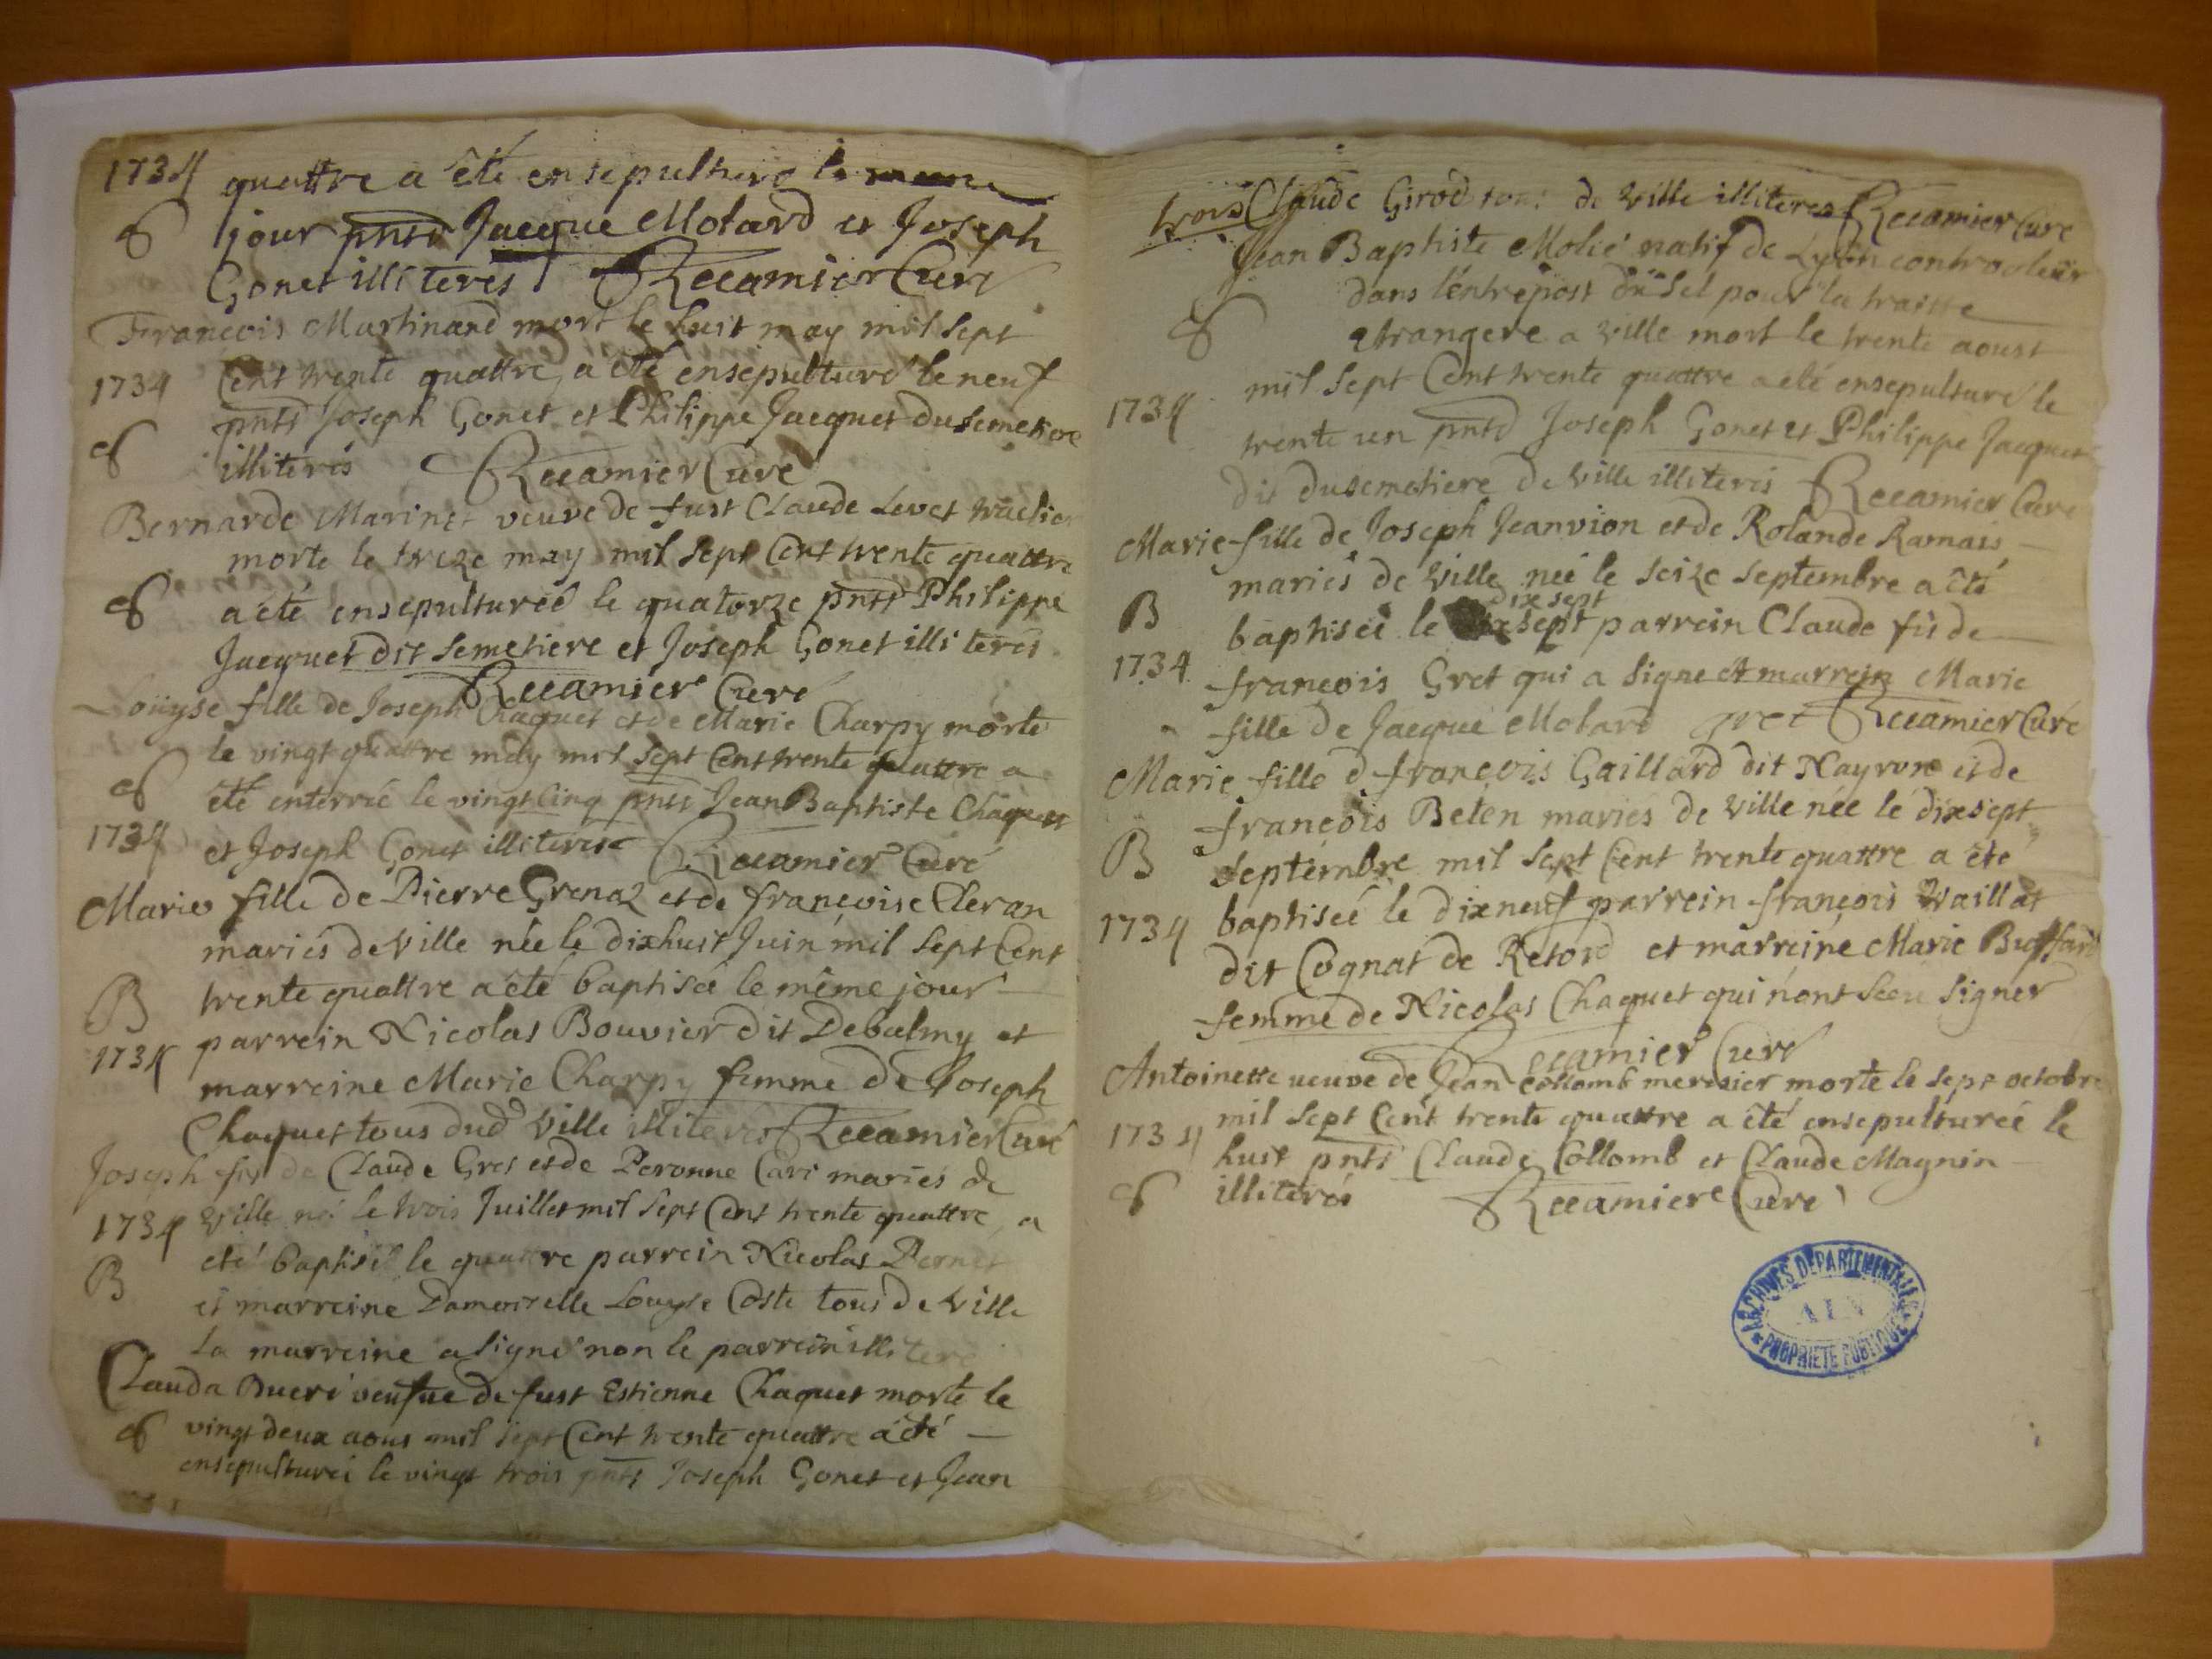 1734 quattre a êté ensepulturé le meme
jour pnts Jacque Molard et Joseph
Gonet illiteres Reccamier Curé
François Martinand mort le huit may mil sept
1734 Cent trente quattre, a êté ensepulturé le neuf
pnts Joseph Gonet et Philippe Jacquet du semetiere
illiterés Reccamier Curé
Bernarde Marinet veuve de fust Claude Levet
morte le treze may mil sept Cent trente quattre
a été ensepulturéé le quatorze pnts Philippe
Jacquet dit semetiere et Joseph Gonet illiterés
Reccamier Curé
Loüyse fille de Joseph Chaquet et de Marie Charpy morte
le vingt quattre may mil sept Cent trente quattre a
été enterréé le vingt Cinq pnts Jean Baptiste Chaquet
1734 et Joseph Gonet illiterés Reccamier Curé
Marie fille de Pierre Grenaz et de françoise Cleran
mariés de Ville née le dixhuit Juin mil sept Cent
B trente quattre a êté baptiséé le même jour
1734 parrein Nicolas Bouvier dit Debalmy et
marreine Marie Charpy femme de Joseph
Chaquet tous dud Ville illiterés Reccamier Curé
Joseph fis de Claude Gret et de Peronne Cari mariés de
1734 Ville né le trois Juillet mil sept Cent trente quattre, a
B eté baptisé le quattre parrein Nicolas Pernet
et marreine Damoiselle Louyse Coste tous de Ville
La marreine a signé non le parrein illiteré
Clauda Bueri veufue de fust Estienne Chaquet morte le
vingt deux aous mil sept Cent trente quattre a été
ensepulturéé le vingt trois pnts Joseph Gonet et Jean
trois Claude Girod tous de Ville illiteres Reccamier Curé
Jean Baptiste Molié natif de Lyon controoleür
dans l'entrepost du sel pour la traitte
etrangere a Ville mort le trente aoust
mil sept Cent trente quattre a eté ensepulturé le
1734 trente un pnts Joseph Gonet et Philippe Jacquet
dit dusemetiere de Ville illiterés Reccamier Curé
Marie fille de Joseph Jeanvion et de Rolande Ramais
mariés de Ville neé le seize septembre a été
dix sept
B baptiséé le sept parrein Claude fis de
1734 françois Gret qui a signé et marrein Marie
fille de Jacque Molard gret Reccamier Curé
Marie fille d françois Gaillard dit Nayron et de
françois Beten mariés de Ville née le dixsept
B septembre mil sept Cent trente quattre a été
1734 baptiséé le dixneuf parrein françois
dit Cognat de Retord et marreine Marie Buffard
femme de Nicolas Chaquet qui n'ont sceu signer
Reccamier Curé
Antoinette veuve de Jean Collomb morte le sept octobre
1734 mil sept Cent trente quattre a été ensepulturéé le
huit pnts Claude Collomb et Claude Magnin
illiterés Reccamier Curé
ARCHIVES DÉPARTEMENTALES
AIN
PROPRIÉTÉ PUBLIQUE